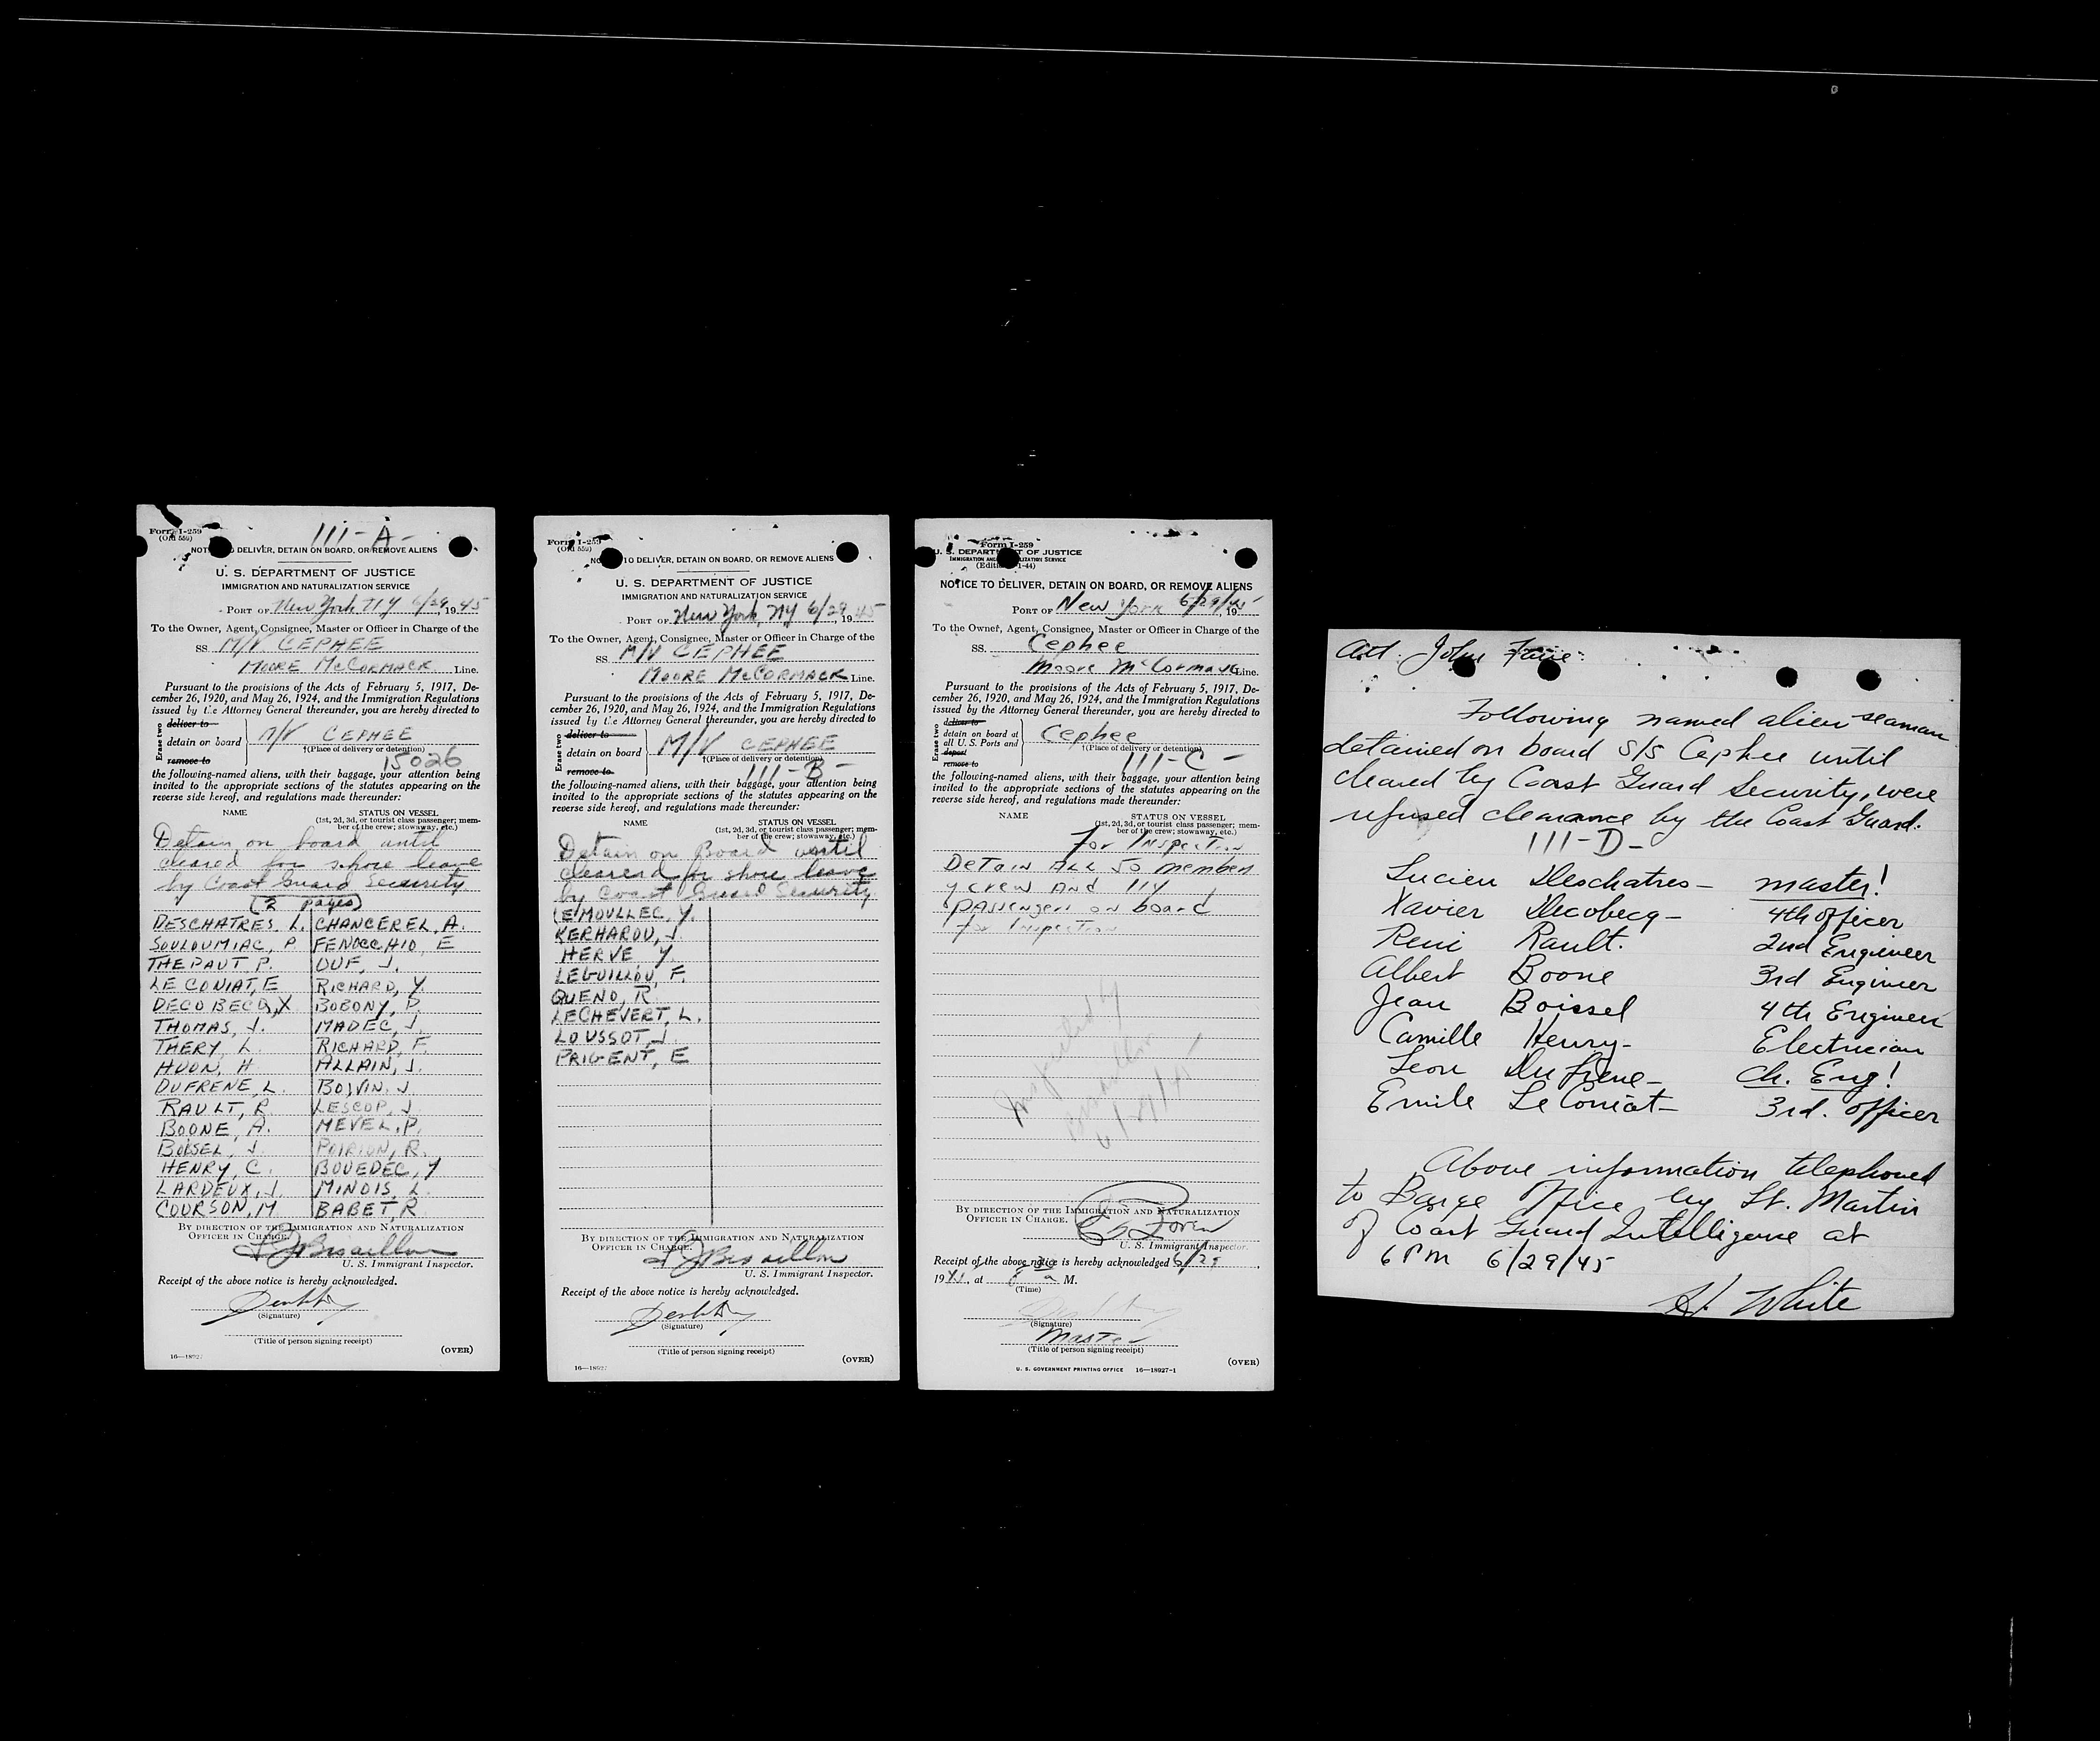 Form I-259
(Old 559)
111-A-
DELIVER, DETAIN ON BOARD, OR REMOVE ALIENS
U. S. DEPARTMENT OF JUSTICE
IMMIGRATION AND NATURALIZATION SERVICE
PORT OF New York NY 6/29, 1945
To the Owner, Agent, Consignee, Master or Officer in Charge of the
SS. M/V CEPHEE
MOORE McCORMACK Line.
Pursuant to the provisions of the Acts of February 5, 1917, De-
cember 26, 1920, and May 26, 1924, and the Immigration Regulations
issued by the Attorney General thereunder, you are hereby directed to
Erase two
deliver to
detain on board
remove to
M/V CEPHEE
†(Place of delivery or detention)
15026
the following-named aliens, with their baggage, your attention being
invited to the appropriate sections of the statutes appearing on the
reverse side hereof, and regulations made thereunder:
NAME STATUS ON VESSEL
(1st, 2d, 3d, or tourist class passenger; mem-
ber of the crew; stowaway, etc.)
Detain on board until
cleared for shore leave
by Coast Guard Security
(2 pages)
DESCHATRES L. CHANCEREL, A.
SOULOUMIAC, P. FENOCCHIO, E
THEPAUT P. OUF, J.
LE CONIAT, E RICHARD, Y.
DECOBECQ, X BOBONY, P.
THOMAS, J. MADEC, J.
THERY, L RICHARD, F.
HUON, H ALLAIN, J.
DUFRENE, L. BOIVIN, J
RAULT, R LESCOP, J
BOONE, A. MEVEL, P.
BOISSEL, J. POIRION, R.
HENRY, C. BOUEDEC, Y
LARDEUX, J. MINOIS, L.
COURSON, M BABET, R
BY DIRECTION OF THE IMMIGRATION AND NATURALIZATION
OFFICER IN CHARGE.
U. S. Immigrant Inspector.
Receipt of the above notice is hereby acknowledged.
(Signature)
(Title of person signing receipt)
(OVER)
16—18927
Form I-259
(Old 559)
TO DELIVER, DETAIN ON BOARD, OR REMOVE ALIENS
U. S. DEPARTMENT OF JUSTICE
IMMIGRATION AND NATURALIZATION SERVICE
PORT OF New York, NY 6/29, 1945
To the Owner, Agent, Consignee, Master or Officer in Charge of the
SS M/V CEPHEE
MOORE McCORMACK Line.
Pursuant to the provisions of the Acts of February 5, 1917, De-
cember 26, 1920, and May 26, 1924, and the Immigration Regulations
issued by the Attorney General thereunder, you are hereby directed to
Erase two
deliver to
detain on board
remove to
M/V CEPHEE
†(Place of delivery or detention)
111-B-
the following-named aliens, with their baggage, your attention being
invited to the appropriate sections of the statutes appearing on the
reverse side hereof, and regulations made thereunder:
NAME STATUS ON VESSEL
(1st, 2d, 3d, or tourist class passenger; mem-
ber of the crew; stowaway, etc.)
Detain on Board until
cleared for shore leave
by Coast Guard Security
LEMOULLEC, Y.
KERHAROU, J.
HERVE Y.
LEGUILLOU, F.
QUENO, R
LECHEVERT, L.
LOUSSOT, J
PRIGENT, E
BY DIRECTION OF THE IMMIGRATION AND NATURALIZATION
OFFICER IN CHARGE.
U. S. Immigrant Inspector.
Receipt of the above notice is hereby acknowledged.
(Signature)
(Title of person signing receipt)
(OVER)
16—18927
Form I-259
U. S. DEPARTMENT OF JUSTICE
IMMIGRATION AND NATURALIZATION SERVICE
NOTICE TO DELIVER, DETAIN ON BOARD, OR REMOVE ALIENS
PORT OF New York 6/29/45, 19
To the Owner, Agent, Consignee, Master or Officer in Charge of the
SS. Cephee
Moore McCormack Line.
Pursuant to the provisions of the Acts of February 5, 1917, De-
cember 26, 1920, and May 26, 1924, and the Immigration Regulations
issued by the Attorney General thereunder, you are hereby directed to
Erase two
deliver to
detain on board at
all U. S. Ports and
deport
remove to
Cephee
†(Place of delivery or detention)
111-C-
the following-named aliens, with their baggage, your attention being
invited to the appropriate sections of the statutes appearing on the
reverse side hereof, and regulations made thereunder:
NAME STATUS ON VESSEL
(1st, 2d, 3d, or tourist class passenger; mem-
ber of the crew; stowaway, etc.)
For Inspection
Detain all 50 members
of crew and 114
passengers on board
for Inspection
Inspected by
6/29/45
BY DIRECTION OF THE IMMIGRATION AND NATURALIZATION
OFFICER IN CHARGE.
U. S. Immigrant Inspector.
Receipt of the above notice is hereby acknowledged 6/29,
1945, at 8 a M.
(Time)
(Signature)
Master
(Title of person signing receipt)
(OVER)
U. S. GOVERNMENT PRINTING OFFICE 16—18927-1
Att. John
Following named alien seaman
detained on board S/S Cephee until
cleared by Coast Guard Security, were
refused clearance by the Coast Guard.
111-D-
Lucien Deschatres- master!
Xavier Decobecq- 4th officer
Reni Rault. 2nd Engineer
Albert Boone 3rd Engineer
Jean Boissel 4th Engineer
Camille Henry- Electrician
Leon Dufrene- Ch. Eng!
Emile LeConiat- 3rd. officer
Above information telephoned
to Barge Office by Lt. Martin
of Coast Guard Intelligence at
6 PM 6/29/45
H. White